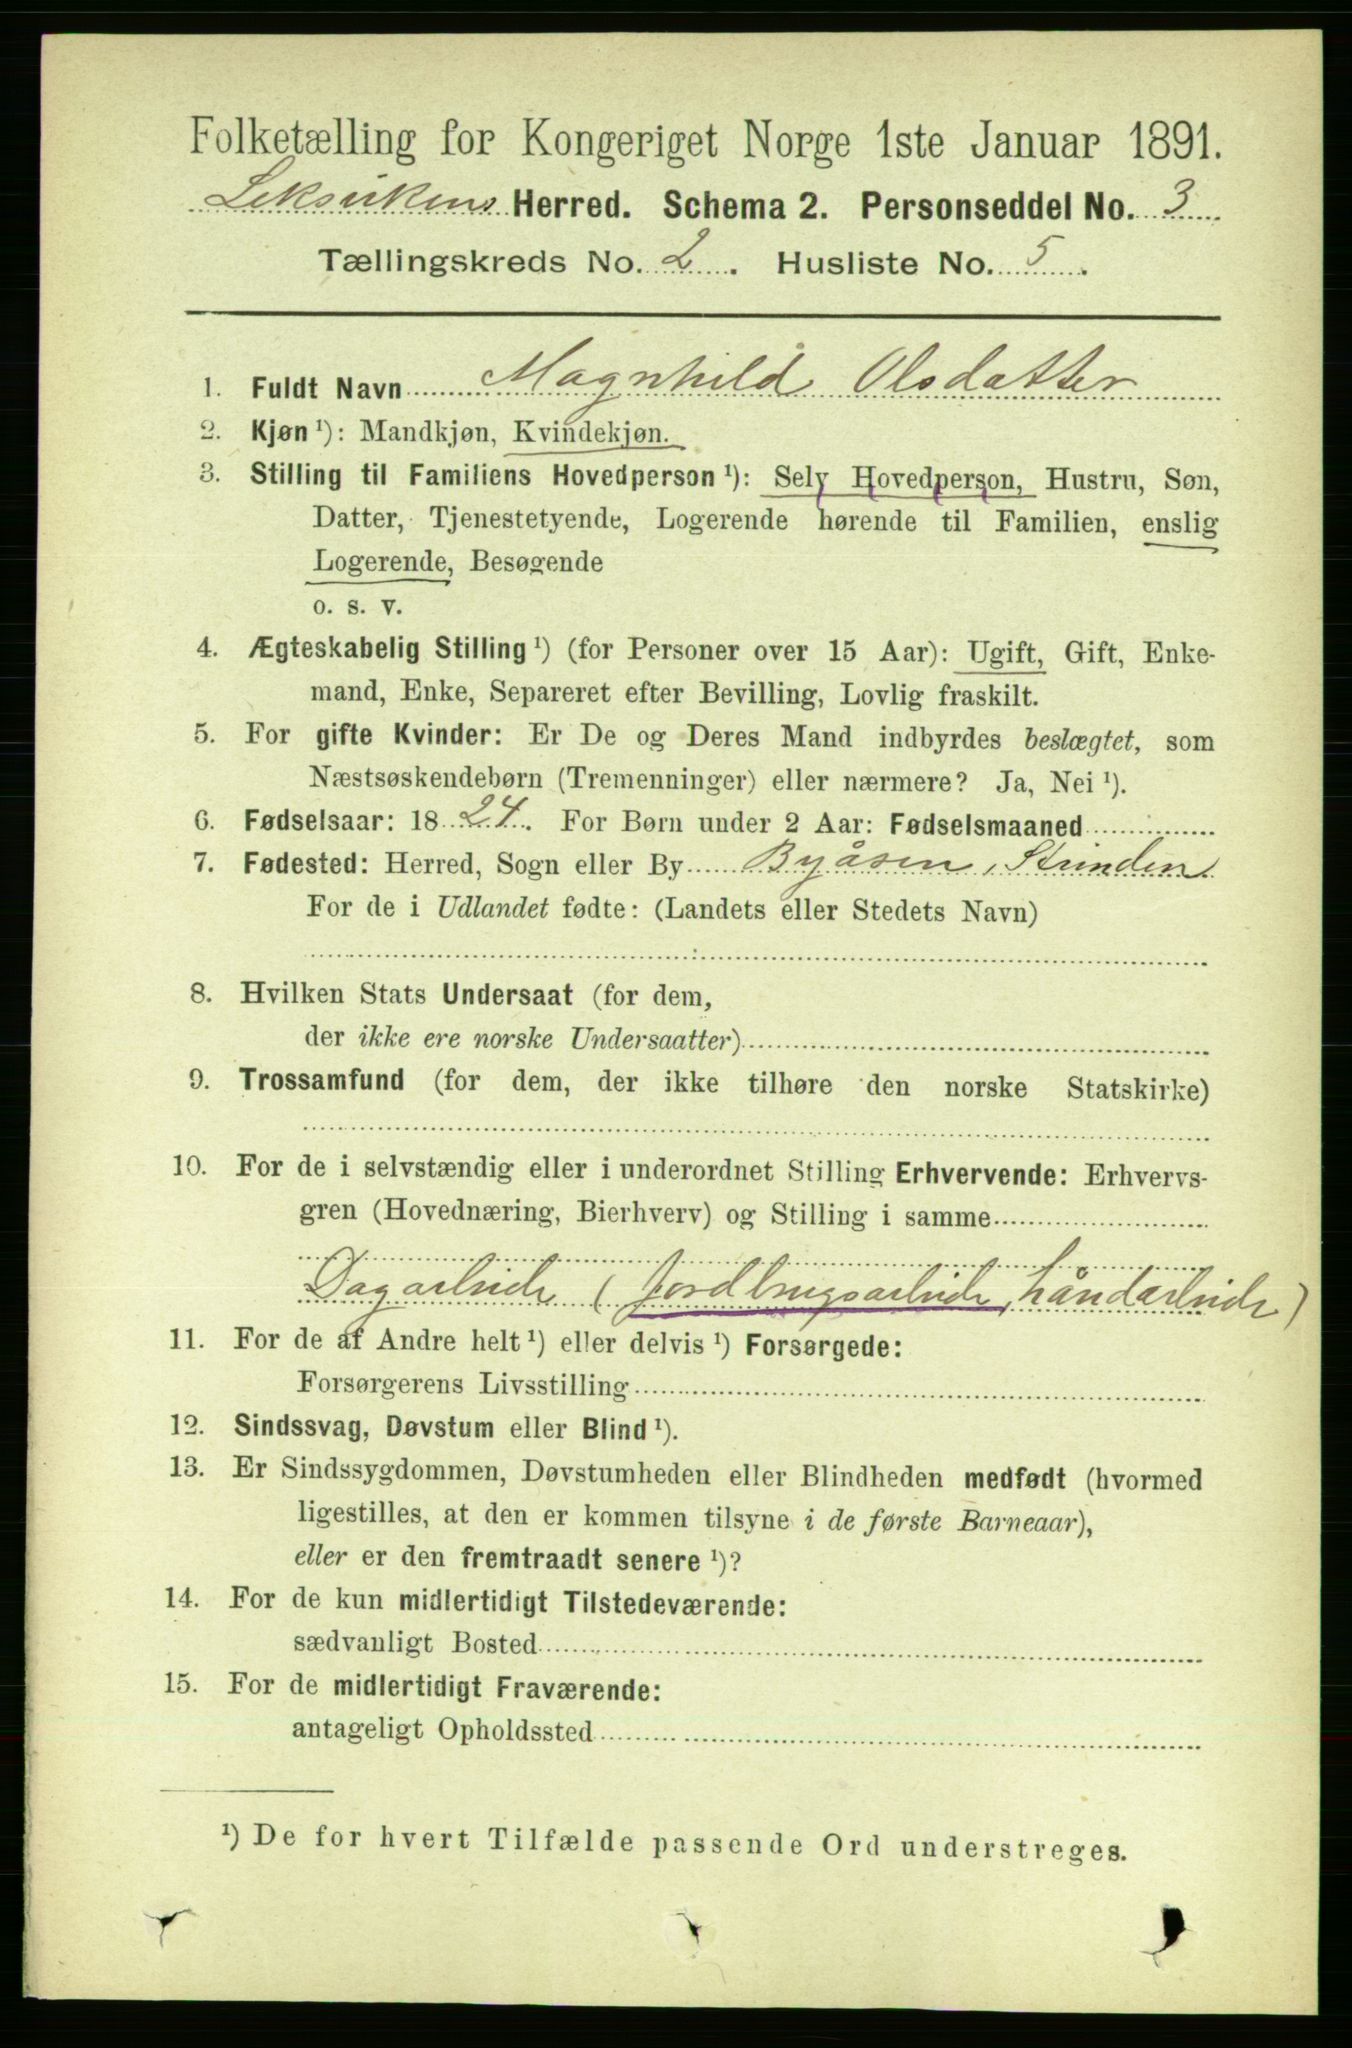 Folketælling for Kongeriget Norge 1ste Januar 1891.
Leksvikens Herred. Schema 2. Personseddel No. 3
Tællingskreds No. 2. Husliste No. 5.
1. Fuldt Navn Magnhild Olsdatter
2. Kjøn ¹): Mandkjøn, Kvindekjøn.
3. Stilling til Familiens Hovedperson ¹): Selv Hovedperson, Hustru, Søn,
Datter, Tjenestetyende, Logerende hørende til Familien, enslig
Logerende, Besøgende
o. s. v.
4. Ægteskabelig Stilling ¹) (for Personer over 15 Aar): Ugift, Gift, Enke-
mand, Enke, Separeret efter Bevilling, Lovlig fraskilt.
5. For gifte Kvinder: Er De og Deres Mand indbyrdes beslægtet, som
Næstsøskendebørn (Tremenninger) eller nærmere? Ja, Nei ¹).
6. Fødselsaar: 1824. For Børn under 2 Aar: Fødselsmaaned
7. Fødested: Herred, Sogn eller By Byåsen, Strinden
For de i Udlandet fødte: (Landets eller Stedets Navn)
8. Hvilken Stats Undersaat (for dem,
der ikke ere norske Undersaatter)
9. Trossamfund (for dem, der ikke tilhøre den norske Statskirke)
10. For de i selvstændig eller i underordnet Stilling Erhvervende: Erhvervs-
gren (Hovednæring, Bierhverv) og Stilling i samme
Dagarbeide (jordbrugsarbeide, håndarbeide)
11. For de af Andre helt ¹) eller delvis ¹) Forsørgede:
Forsørgerens Livsstilling
12. Sindssvag, Døvstum eller Blind ¹).
13. Er Sindssygdommen, Døvstumheden eller Blindheden medfødt (hvormed
ligestilles, at den er kommen tilsyne i de første Barneaar),
eller er den fremtraadt senere ¹)?
14. For de kun midlertidigt Tilstedeværende:
sædvanligt Bosted
15. For de midlertidigt Fraværende:
antageligt Opholdssted
¹) De for hvert Tilfælde passende Ord understreges.